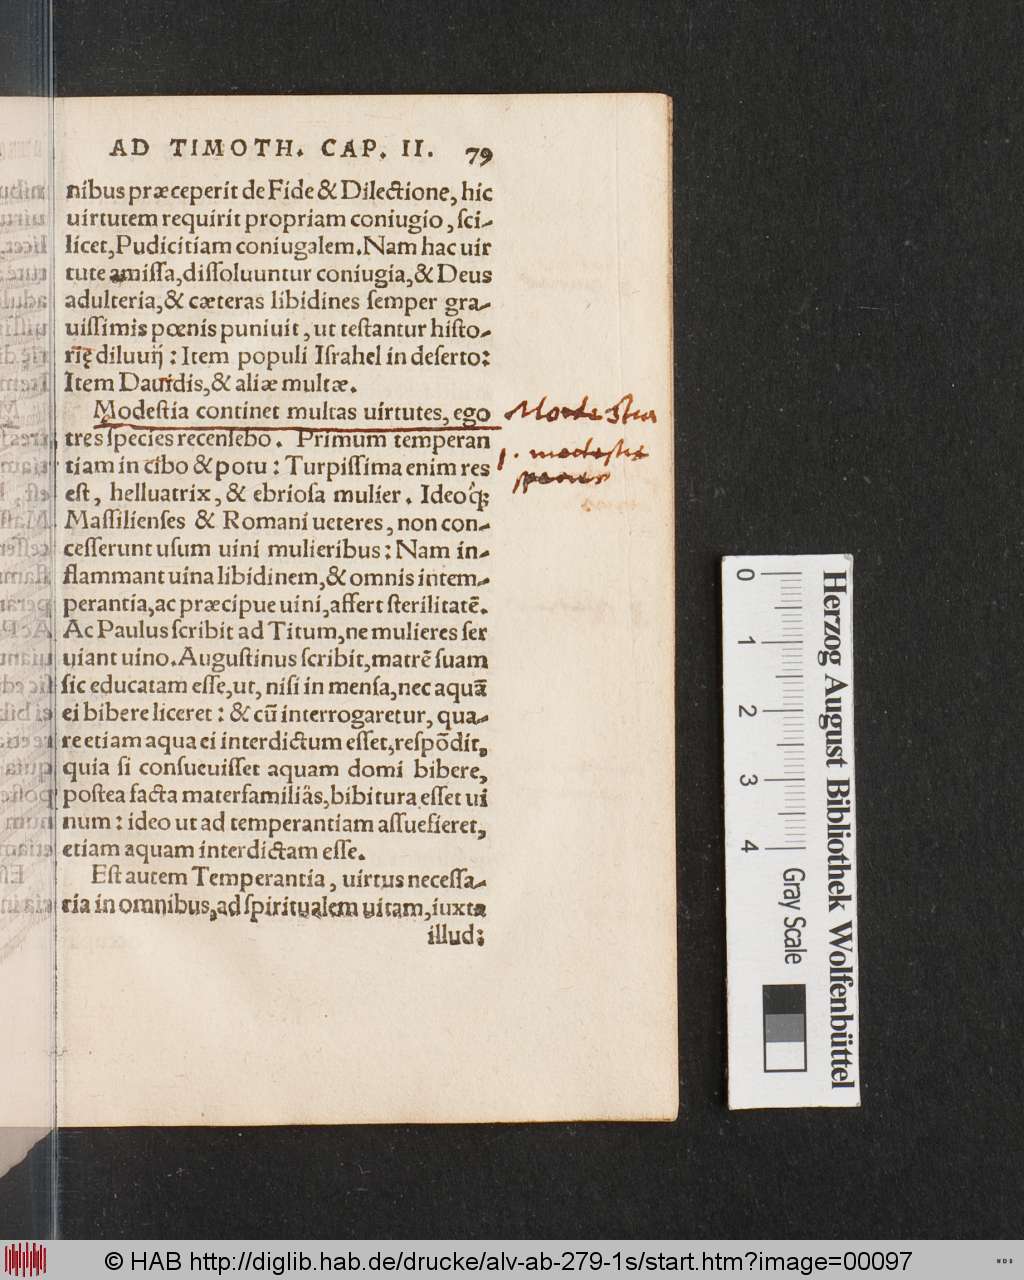 AD TIMOTH. CAP. II. 79
nibus præceperit de Fide & Dilectione, hic
uirtutem requirit propriam coniugio, ſci-
licet, Pudicitiam coniugalem. Nam hac uir
tute amiſſa, diſſoluuntur coniugia, & Deus
adulteria, & cæteras libidines ſemper gra-
uiſſimis pœnis puniuit, ut teſtantur hiſto-
rię diluuij: Item populi Iſrahel in deſerto:
Item Dauidis, & aliæ multæ.
Modeſtia continet multas uirtutes, ego
tres ſpecies recenſebo. Primum temperan
tiam in cibo & potu: Turpiſſima enim res
eſt, helluatrix, & ebrioſa mulier. Ideoq́;
Maſſilienſes & Romani ueteres, non con-
ceſſerunt uſum uini mulieribus: Nam in-
flammant uina libidinem, & omnis intem-
perantia, ac præcipue uini, affert ſterilitatē.
Ac Paulus ſcribit ad Titum, ne mulieres ſer
uiant uino. Auguſtinus ſcribit, matrē ſuam
ſic educatam eſſe, ut, niſi in menſa, nec aquā
ei bibere liceret: & cū interrogaretur, qua-
re etiam aqua ei interdictum eſſet, reſpōdit,
quia ſi conſueuiſſet aquam domi bibere,
poſtea facta materfamiliâs, bibitura eſſet ui
num: ideo ut ad temperantiam aſſuefieret,
etiam aquam interdictam eſſe.
Eſt autem Temperantia, uirtus neceſſa-
ria in omnibus, ad ſpiritualem uitam, iuxta
illud:
Modestia
1. modestiæ
species
0 1 2 3 4
Gray Scale
Herzog August Bibliothek Wolfenbüttel
© HAB http://diglib.hab.de/drucke/alv-ab-279-1s/start.htm?image=00097